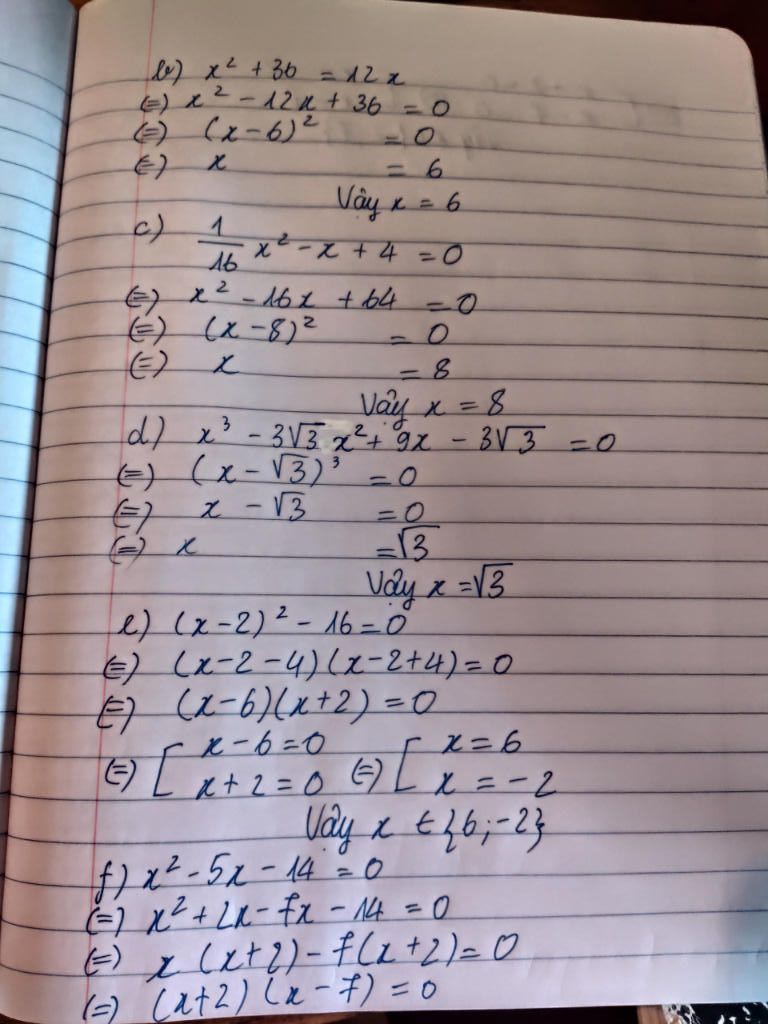 b) x² + 36 = 12x
(=) x² - 12x + 36 = 0
(=) (x - 6)² = 0
(=) x = 6
Vậy x = 6
c) 1/16 x² - x + 4 = 0
(=) x² - 16x + 64 = 0
(=) (x - 8)² = 0
(=) x = 8
Vậy x = 8
d) x³ - 3√3 x² + 9x - 3√3 = 0
(=) (x - √3)³ = 0
(=) x - √3 = 0
(=) x = √3
Vậy x = √3
e) (x - 2)² - 16 = 0
(=) (x - 2 - 4)(x - 2 + 4) = 0
(=) (x - 6)(x + 2) = 0
(=) [ x - 6 = 0 (=) [ x = 6
x + 2 = 0 x = -2
Vậy x ∈ {6; -2}
f) x² - 5x - 14 = 0
(=) x² + 2x - 7x - 14 = 0
(=) x (x + 2) - 7(x + 2) = 0
(=) (x + 2) (x - 7) = 0